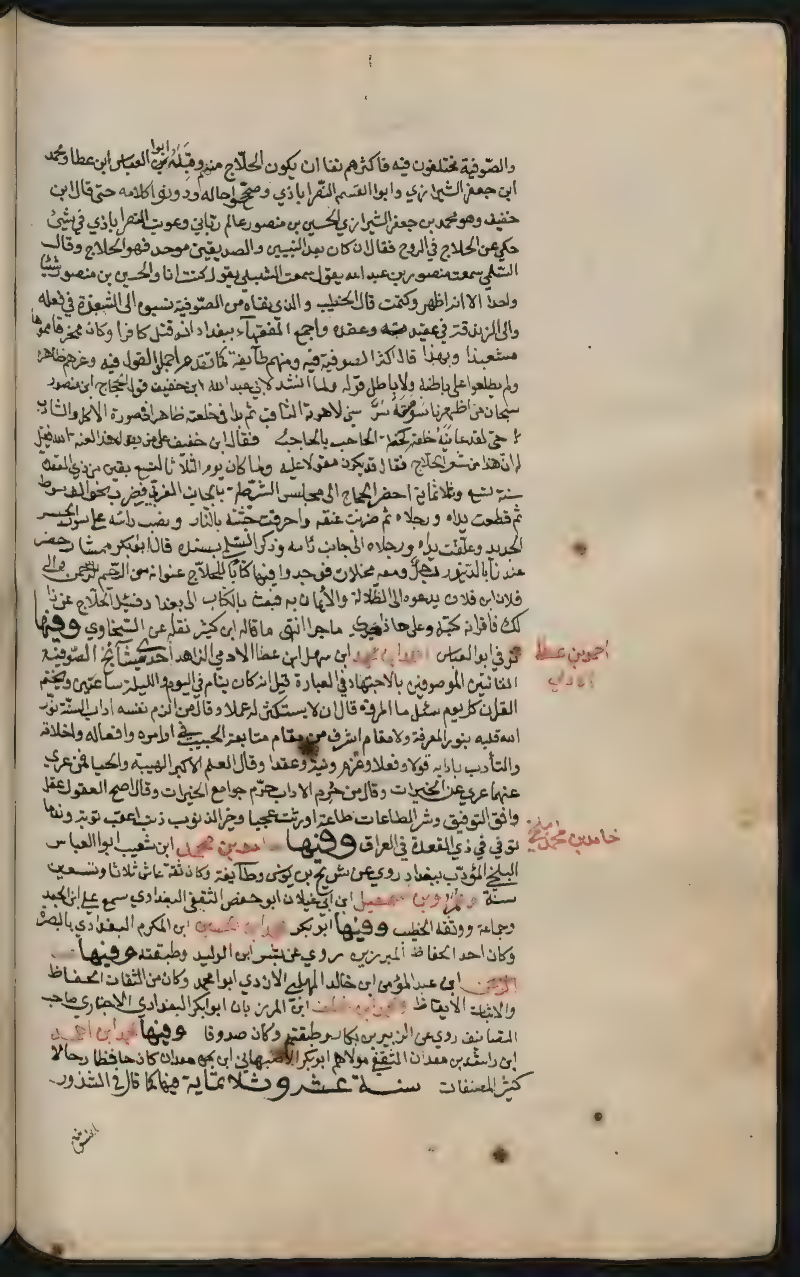 والصوفية مختلفون فيه فاكثرهم نفا ان يكون الحلاج منهم وقبله ابوا العباس ابن عطا ومحمد
ابن جعفر الشيرازي وابوا القسم النصراباذي وصححوا حاله ودونوا كلامه حتى قال ابن
خفيف وهو محمد بن جعفر الشيرازي الحسين بن منصور عالم رباني وعوتب النصراباذي في شئ
حكي عن الحلاج في الروح فقال ان كان بعد النبيين والصديقين موحد فهو الحلاج وقال
السلمي سمعت منصور بن عبد الله يقول سمعت الشبلي يقول كنت انا والحسين بن منصور شيئا
واحدا الا انه اظهر وكتمت قال الخطيب والذي نفاه من الصوفية نسبوه الى الشعبذة في فعله
والى الزندقة في عقيدته وعقده واجمع الفقهاء ببغداد انه قتل كافرا وكان ممخرقا مموها
مشعبذا وبهذا قال اكثر الصوفية فيه ومنهم طآيفة كما تقدم اجملوا القول فيه وغرهم ظاهره
ولم يطلعوا على باطنه ولا باطل قوله ولما انشد لابي عبد الله ابن خفيف قول الحجاج ابن منصور
سبحان من اظهر ناسوته سر سنى لاهوته الثاقب ثم بدا في خلقه ظاهرا في صورة الاكل والشارب
حتى لقد عاينه خلقه كلحظة الحاجب بالحاجب فقال ابن خفيف على من يقول هذا لعنه الله فقيل
له ان هذا من شعر الحلاج فقال قد يكون مقولا عليه ولما كان يوم الثلاثا لتسع بقين من ذي القعدة
سنة تسع وثلاثماية احضر الحلاج الى مجلس الشرطة بالجانب الغربي فضرب نحو الف سوط
ثم قطعت يداه ورجلاه ثم ضربت عنقه واحرقت جثته بالنار ونصب راسه على سور الجسر
الجديد وعلقت يداه ورجلاه الى جانب راسه وذكر السلمي بسنده قال ابو بكر بن ممشاد حضر
عندنا بالدينور رجل ومعه مخلات فوجدوا فيها كتابا للحلاج عنوانه من الرحمن الرحيم الى
فلان ابن فلان يدعوه الى الضلالة والايمان به فبعث بالكتاب الى بغداد فسئل الحلاج عن ذا
لك فاقر انه كتبه وعلى هذا جرى ما جرا انتهى ما قاله ابن كثير نقله عن السخاوي وفيها
توفي ابو العباس احمد ابن محمد ابن سهل ابن عطا الادمي الزاهد احد مشائخ الصوفية
القانتين الموصوفين بالاجتهاد في العبادة قيل انه كان ينام في اليوم والليلة ساعتين ويختم
القران كل يوم سئل ما المروة قال ان لا يستكثر له عملا وقال من الزم نفسه اداب السنة نور
الله قلبه بنور المعرفة ولا مقام اشرف من مقام متابعة الحبيب في اوامره وافعاله واخلاقه
والتأدب بادابه قولا وفعلا وعزم ونية وعقدا وقال العلم الاكبر الهيبة والحيا فمن عري
عنهما عري عن الخيرات وقال من حرم الاداب حرم جوامع الخيرات وقال اصح العقول عقل
وافق التوفيق وشر الطاعات طاعة اورثت عجبا وخير الذنوب ذنب اعقب توبة وندما
توفي في ذي القعدة في العراق وفيها حامد بن محمد ابن شعيب ابوا العباس
البلخي المؤدب ببغداد روي عن شريح بن يونس وطآيفة وكان ثقة عاش ثلاثا وتسعين
سنة وعمر بن اسمعيل ابن ابي غيلان ابو حفص الثقفي البغدادي سمع علي ابن الجعد
وجماعة ووثقه الخطيب وفيها ابو بكر محمد ابن الحسين ابن المكرم البغدادي بالبصرة
وكان احد الحفاظ المبرزين روي عن بشر ابن الوليد وطبقته وفيها
الرحمن ابن عبد المؤمن ابن خالد المهلبي الازدي ابوا محمد وكان من الثقات الحفاظ
والاثبات الايقاظ ومحمد بن خلف ابن المرزبان ابو ابكر البغدادي الاخباري صاحب
التصانيف روي عن الزبير بن بكار وطبقته وكان صدوقا وفيها محمد ابن احمد
ابن راشد بن معدان الثقفي مولاهم ابو بكر الاصبهاني ابن معدان كان حافظا رحالا
كثير المصنفات سنة عشر وثلاثماية فيها كما قال في الشذور
احمد بن عطا
الادمي
حامد بن محمد البلخي